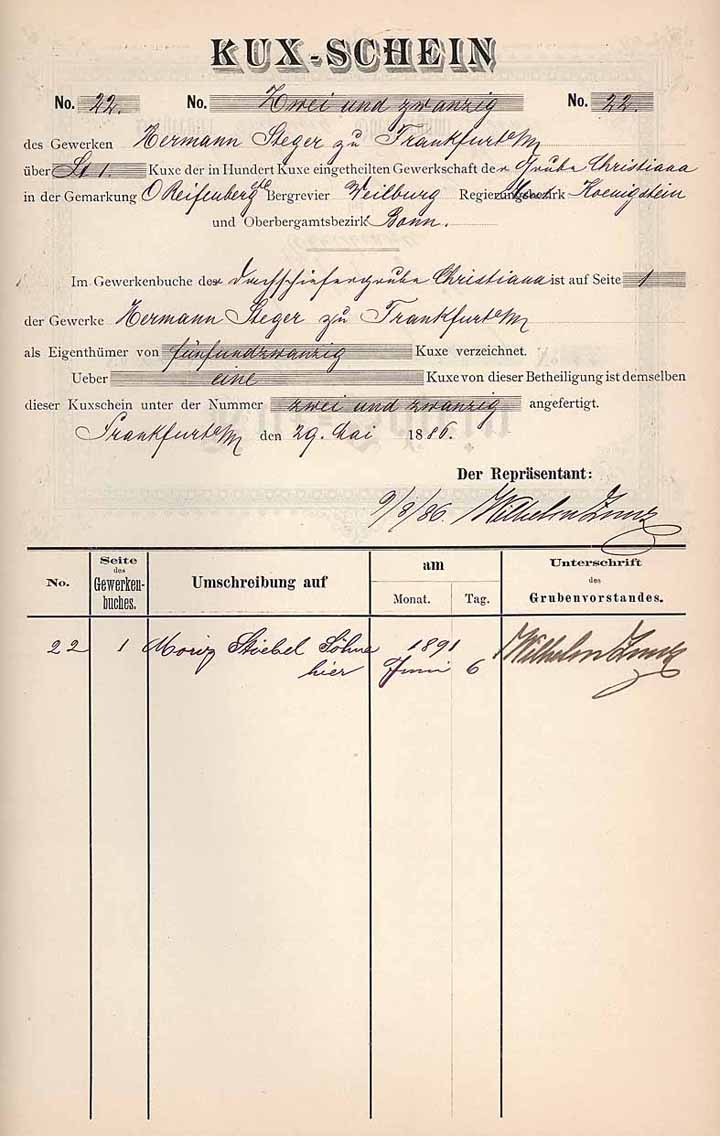 KUX-SCHEIN
No. 22. No. Zwei und zwanzig No. 22.
des Gewerken Hermann Steger zu Frankfurt a/M
über St 1. Kuxe der in Hundert Kuxe eingetheilten Gewerkschaft der Grube Christiana
in der Gemarkung O Reifenberg Bergrevier Weilburg Regierungsbezirk Koenigstein
und Oberbergamtsbezirk Bonn.
Im Gewerkenbuche der Dachschiefergrube Christiana ist auf Seite 1
der Gewerke Hermann Steger zu Frankfurt a/M
als Eigenthümer von fünfundzwanzig Kuxe verzeichnet.
Ueber eine Kuxe von dieser Betheiligung ist demselben
dieser Kuxschein unter der Nummer zwei und zwanzig angefertigt.
Frankfurt a/M den 29. Mai 1886.
Der Repräsentant:
9/8/86. Wilhelm
No. Seite des Gewerken-buches. Umschreibung auf am Monat. Tag. Unterschrift des Grubenvorstandes.
22 1 Moriz Stiebel Söhne 1891 Wilhelm
hier Juni 6